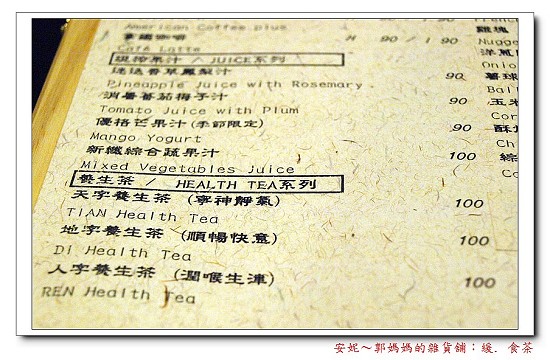 American Coffee plus
拿鐵咖啡 H 90 / I 90
Café Latte
現搾果汁 / JUICE系列
迷迭香草鳳梨汁 90
Pineapple Juice with Rosemary
消暑蕃茄梅子汁 90
Tomato Juice with Plum
優格芒果汁(季節限定) 90
Mango Yogurt
新纖綜合蔬果汁 100
Mixed Vegetables Juice
養生茶 / HEALTH TEA系列
天字養生茶 (寧神靜氣) 100
TIAN Health Tea
地字養生茶 (順暢快意) 100
Di Health Tea
人字養生茶 (潤喉生津) 100
REN Health Tea
雞塊
Nugge
洋蔥
Onio
薯球
Ball
玉米
Cor
酥炸
Ch
綜
Co
安妮~郭媽媽的雜貨舖：緩．食茶